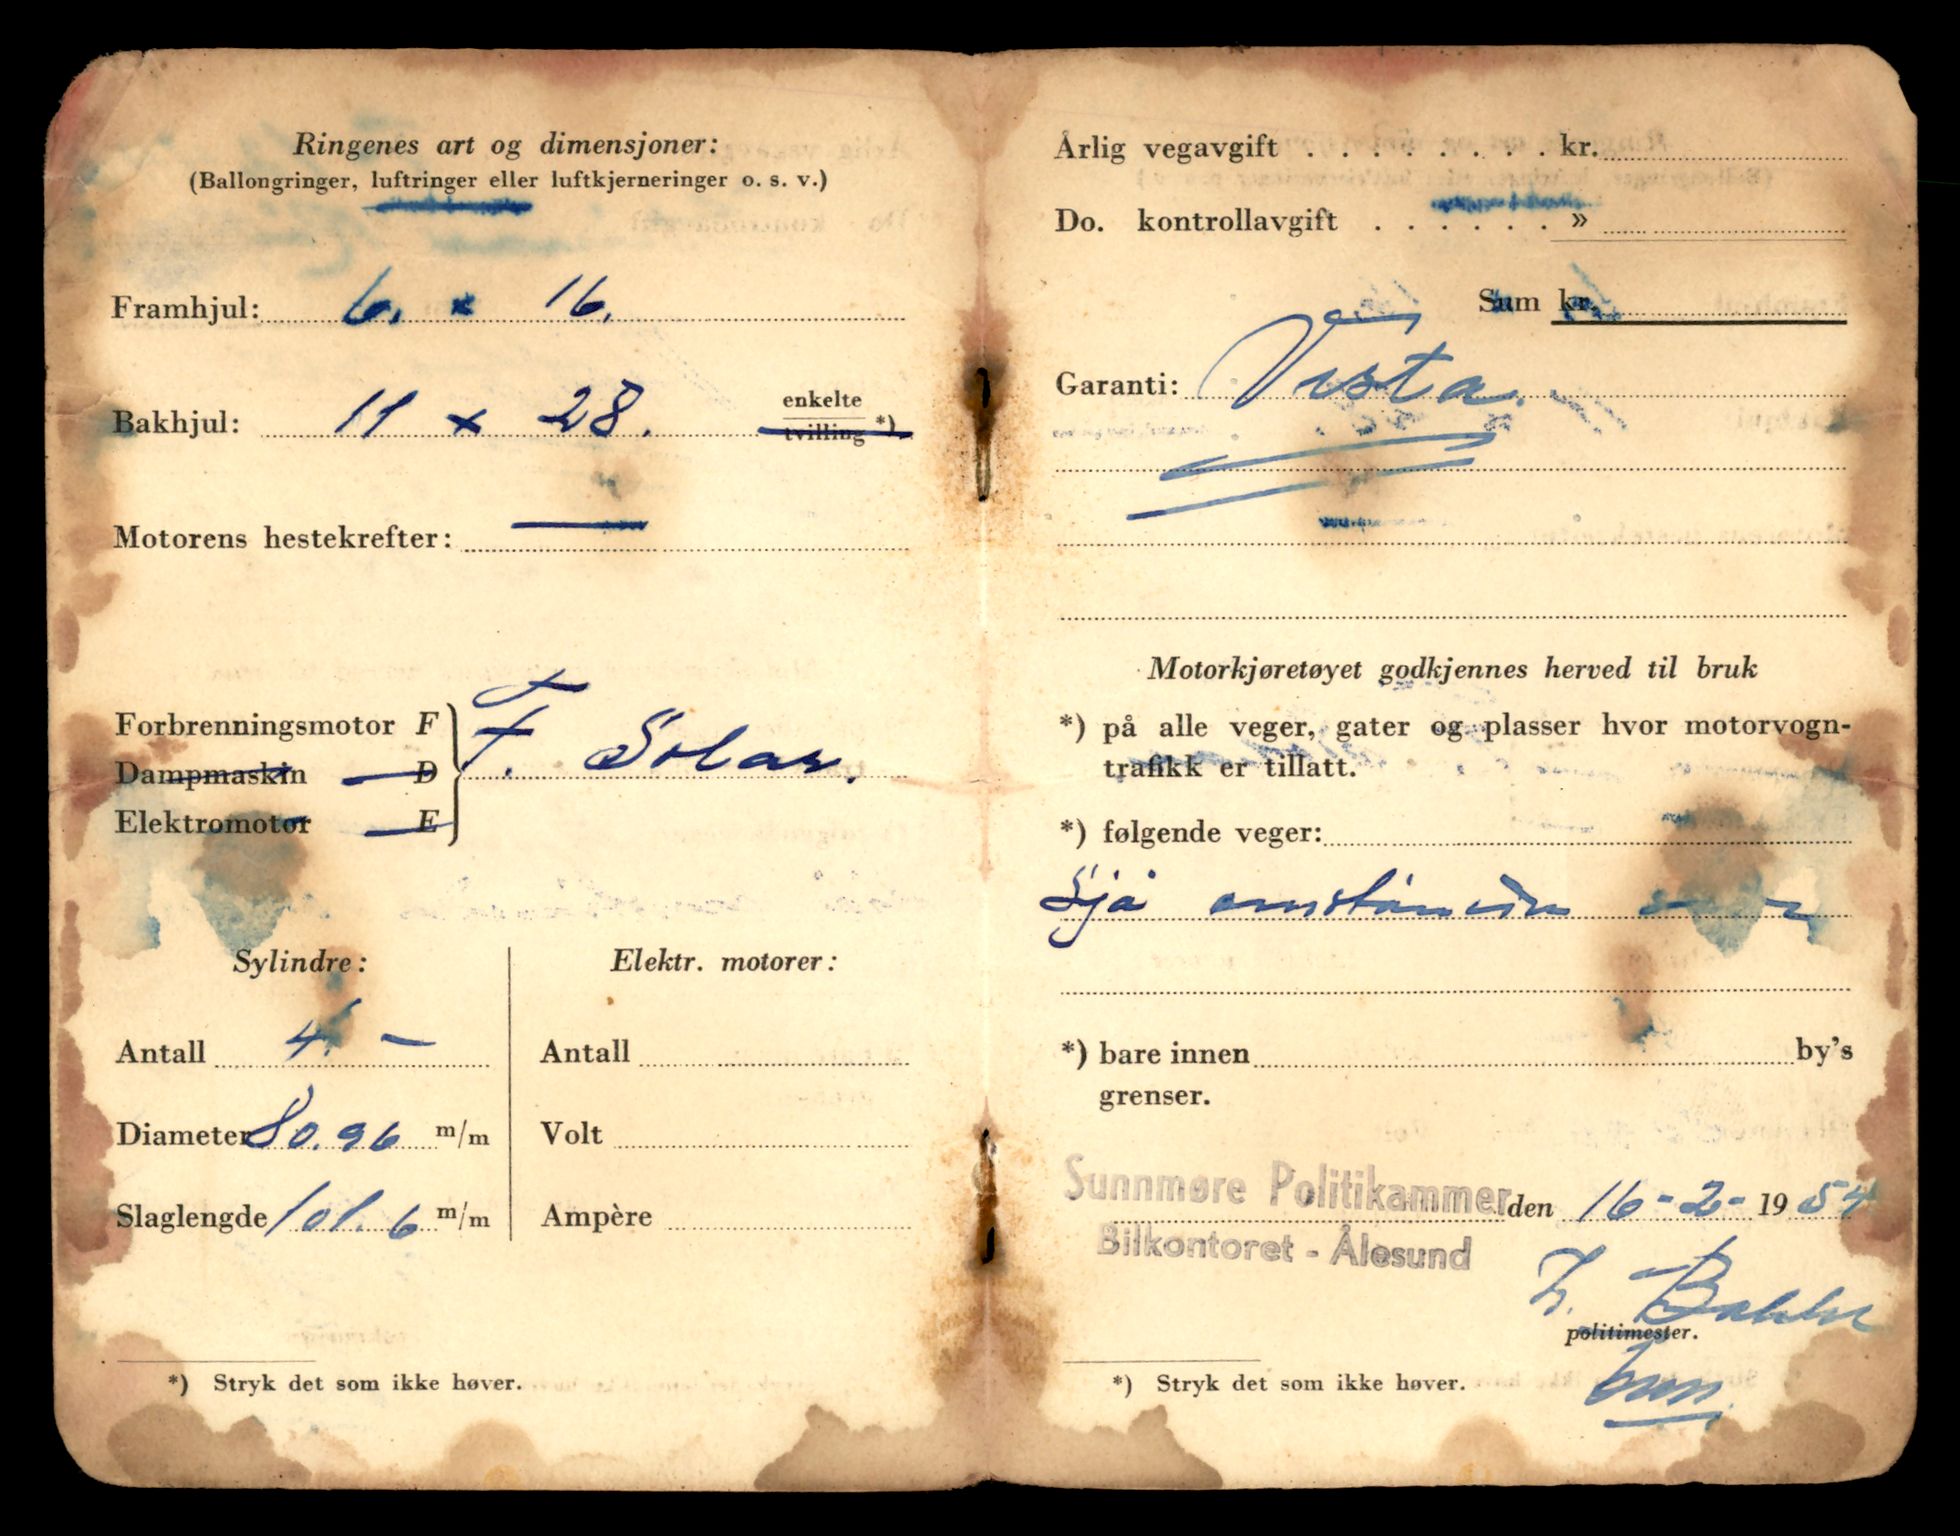 Ringenes art og dimensjoner:
(Ballongringer, luftringer eller luftkjerneringer o. s. v.)
Framhjul: 6. x 16.
Bakhjul: 11 x 28. enkelte
tvilling *)
Motorens hestekrefter: —
Forbrenningsmotor F
Dampmaskin D
Elektromotor E
F. Solar.
Sylindre:
Antall 4. —
Diameter 80.96 m/m
Slaglengde 101.6 m/m
Elektr. motorer:
Antall
Volt
Ampère
*) Stryk det som ikke høver.
Årlig vegavgift . . . . . . . . kr.
Do. kontrollavgift . . . . . . »
Sum kr.
Garanti: Vesta.
Motorkjøretøyet godkjennes herved til bruk
*) på alle veger, gater og plasser hvor motorvogn-
trafikk er tillatt.
*) følgende veger:
Sjå
*) bare innen by's
grenser.
Sunnmøre Politikammer den 16-2-1954
Bilkontoret - Ålesund
politimester.
*) Stryk det som ikke høver.